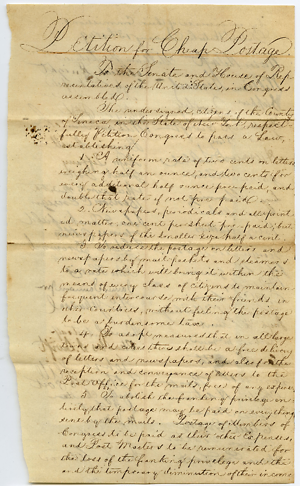 Petition for Cheap Postage
To the Senate and House of Rep-
resentatives of the United States, in Congress
assembled.
The undersigned, citizens of the County
of Seneca in the State of New York respect
fully Petition Congress to pass a Law,
establishing
1. A uniform rate of two cents on letters
weighing half an ounce, and two cents for
every additional half ounce pre-paid, and
double that rate if not pre-paid.
2. Newspapers, periodicals and all print
ed matter, one cent per sheet pre-paid; but
newspapers of the smaller size half a cent
3. To reduce the postage on letters and
newspapers by mail packets and steamers
to a rate which will bring it within the
means of every class of citizens to maintain
frequent intercourse with their friends in
other Countries, without feeling the postage
to be a burdensome tax.
4. To adopt measures that in all large
towns and cities there shall be a free delivery
of letters and newspapers, and also for the
reception and conveyance of letters to the
Post Office for the mails, free of any expense
5. To abolish the franking privilege in
that postage may be paid on everything
sent by the mails. Postage of Members of
Congress to be paid as their other Expenses,
and Post Masters to be remunerated for
the loss of the franking privilege and the
and the temporary diminution of their income